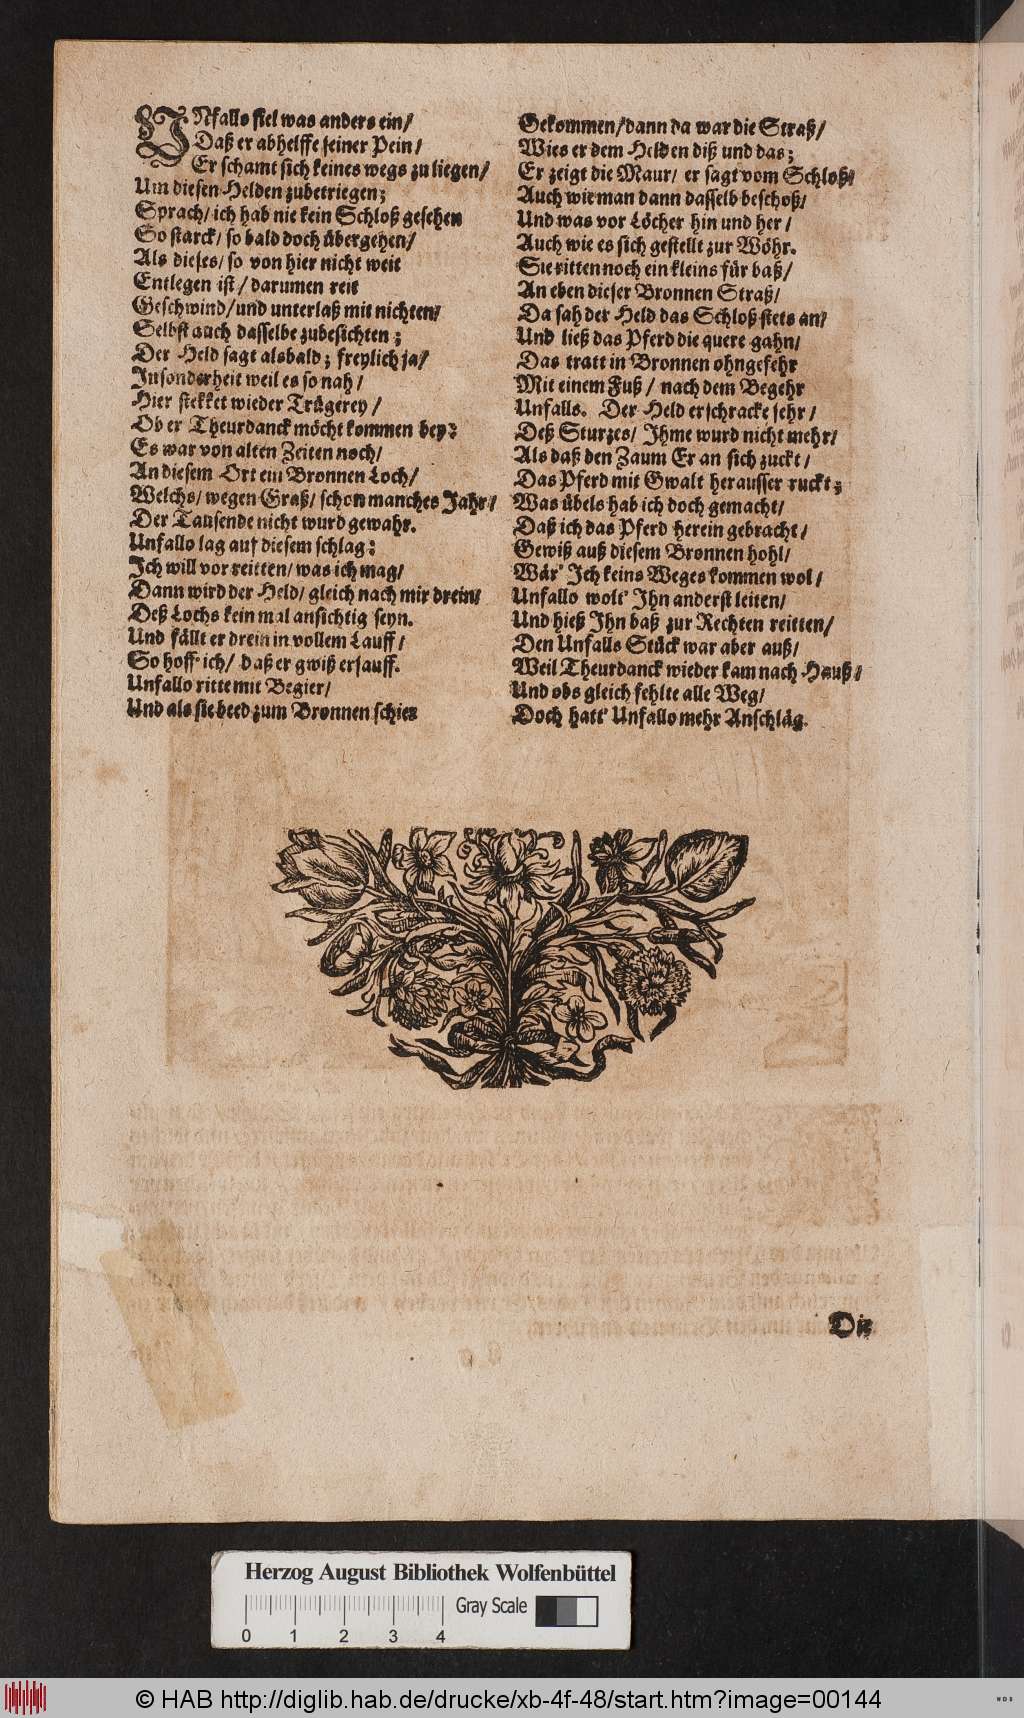 UNfallo fiel was anders ein/
Daß er abhelffe seiner Pein/
Er schamt sich keines wegs zu liegen/
Um diesen Helden zubetriegen;
Sprach/ ich hab nie kein Schloß gesehen
So starck/ so bald doch übergehen/
Als dieses/ so von hier nicht weit
Entlegen ist/ darumen reit
Geschwind/ und unterlaß mit nichten/
Selbst auch dasselbe zubesichten;
Der Held sagt alsbald; freylich ja/
Insonderheit weil es so nah/
Hier stekket wieder Trügerey/
Ob er Theurdanck möcht kommen bey?
Es war von alten Zeiten noch/
An diesem Ort ein Bronnen Loch/
Welchs/ wegen Graß/ schon manches Jahr/
Der Tausende nicht wurd gewahr.
Unfallo lag auf diesem schlag:
Ich will vor reitten/ was ich mag/
Dann wird der Held/ gleich nach mir drein/
Deß Lochs kein mal ansichtig seyn.
Und fällt er drein in vollem Lauff/
So hoff ich/ daß er gwiß ersauff.
Unfallo ritte mit Begier/
Und als sie beed zum Bronnen schier
Gekommen/ dann da war die Straß/
Wies er dem Helden diß und das;
Er zeigt die Maur/ er sagt vom Schloß/
Auch wie man dann dasselb beschoß/
Und was vor Löcher hin und her/
Auch wie es sich gestellt zur Wöhr.
Sie ritten noch ein kleins für baß/
An eben dieser Bronnen Straß/
Da sah der Held das Schloß stets an/
Und ließ das Pferd die quere gahn/
Das tratt in Bronnen ohngefehr
Mit einem Fuß/ nach dem Begehr
Unfalls. Der Held erschracke sehr/
Deß Sturzes/ Ihme wurd nicht mehr/
Als daß den Zaum Er an sich zuckt/
Das Pferd mit Gwalt herausser ruckt;
Was übels hab ich doch gemacht/
Daß ich das Pferd herein gebracht/
Gewiß auß diesem Bronnen hohl/
Wär' Ich keins Weges kommen wol/
Unfallo wolt' Ihn anderst leiten/
Und hieß Ihn baß zur Rechten reitten/
Den Unfalls Stück war aber auß/
Weil Theurdanck wieder kam nach Hauß/
Und obs gleich fehlte alle Weg/
Doch hatt' Unfallo mehr Anschläg.
Die
Herzog August Bibliothek Wolfenbüttel
Gray Scale
0 1 2 3 4
© HAB http://diglib.hab.de/drucke/xb-4f-48/start.htm?image=00144